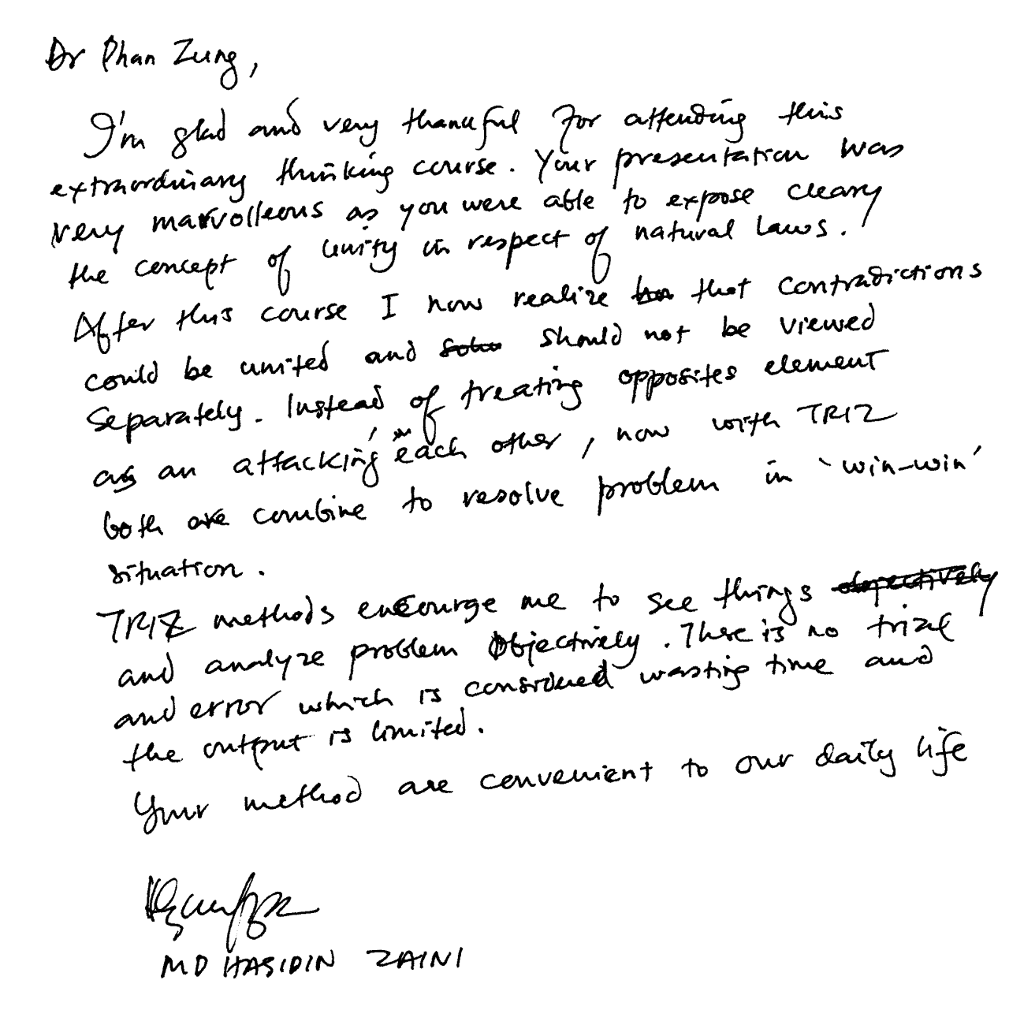 Dr Phan Zung,
I'm glad and very thankful for attending this
extraordinary thinking course. Your presentation was
very marvolleous as you were able to expose cleary
the concept of unity in respect of natural laws.
After this course I now realize that contradictions
could be united and should not be viewed
separately. Instead of treating opposites element
as an attacking each other, now with TRIZ
both are combine to resolve problem in 'win-win'
situation.
TRIZ methods encourge me to see things objectively
and analyze problem objectively. There is no trial
and error which is considered wasting time and
the output is limited.
Your method are convenient to our daily life
MD HASIDIN ZAINI